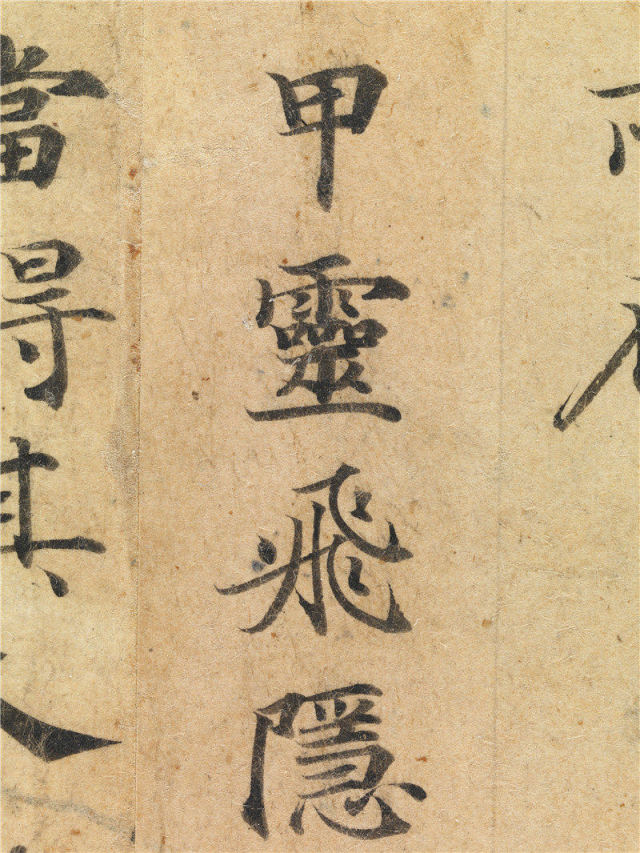 甲靈飛隱
當得其人